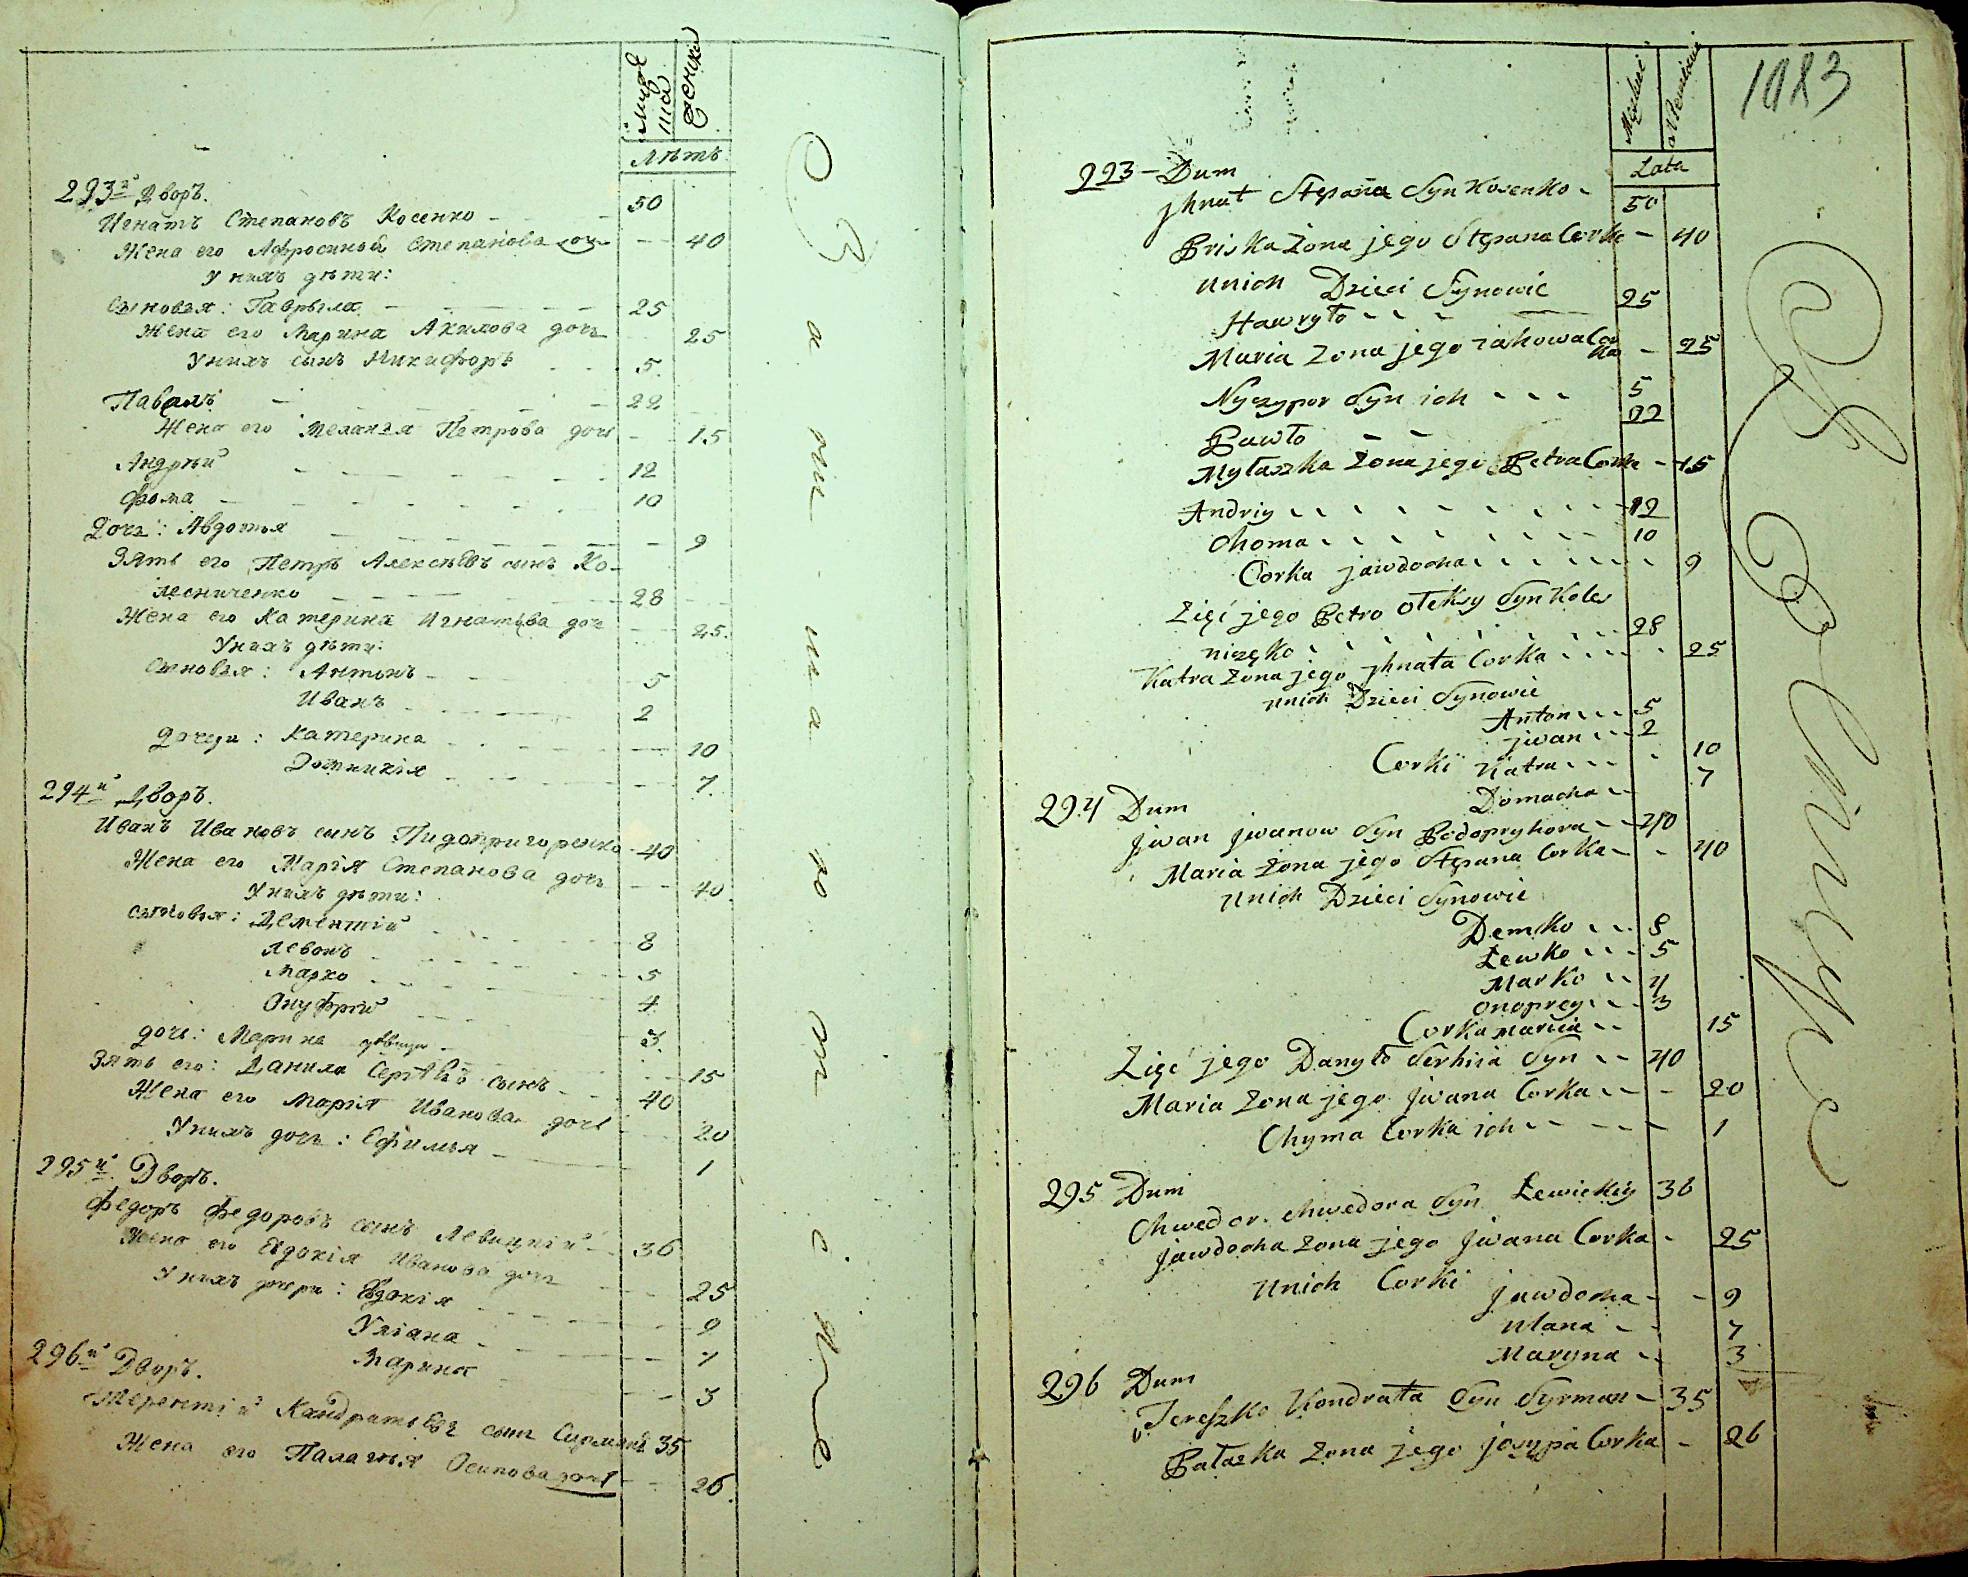 мужеска
женска
Лѣтъ
293й Дворъ.
Игнатъ Степановъ Косенко - 50
Жена его Афросинья Степанова дочь - 40
У нихъ дѣти:
Сыновья: Гаврыла - 25
Жена его Марина Акилова дочь 25
У нихъ сынъ Никифоръ 5
Павелъ - 22
Жена его Меланья Петрова дочь - 15
Андрѣй - 12
Фома - 10
Дочь: Авдотья - 9
Зять его Петръ Алексѣевъ сынъ Ко-
лесниченко - 28
Жена его Катерина Игнатьева дочь 25
У нихъ дѣти:
Сыновья: Антонъ - 5
Иванъ 2
Дочери: Катерина 10
Домникія 7
294й Дворъ.
Иванъ Ивановъ сынъ Пидопригоренко - 40
Жена его Марія Степанова дочь - 40
У нихъ дѣти:
Сыновья: Дементій 8
Левонъ 5
Марко 4
Онуфрій 3
дочь: Марина дѣвица 15
Зять его: Данила Сергѣевъ сынъ 40
Жена его Марія Иванова дочь 20
У нихъ дочь: Ефимья - 1
295й Дворъ.
Федоръ Федоровъ сынъ Левицкій - 36
Жена его Евдокія Иванова дочь 25
У нихъ дочери: Евдокія 9
Уліана 7
Марина 3
296й Дворъ.
Терентій Кандратьевъ сынъ Сирманъ 35
Жена его Палагея Осипова дочь - 26
1023
Męzkie
Lata
293 - Dum
Jhnat Stepana Syn Kosenko - 50
Priska Żona jego Stepana Corka - 40
unich Dzieci Synowie
Hawryło - 25
Maria Żona jego Jakowa Corka - 25
Nyczypor Syn ich 5
Pawło 22
Myłaszka Żona jego Petra Corka - 15
Andriy 12
Choma 10
Corka Jawdocha 9
Zięć jego Petro Ołeksy Syn Koles
niczęko 28
Katra Żona jego Jhnata Corka 25
unich Dzieci Synowie
Anton 5
Jwan 2
Corki Katra 10
Domacha 7
294 Dum
Jwan Jwanow Syn Podopryhora - 40
Maria Żona jego Stepana Corka - 40
unich Dzieci Synowie
Demko 8
Łewko 5
Marko 4
Onoprey 3
Corka Maria 15
Zięć jego Danyło Serhiia Syn - 40
Maria Żona jego Jwana Corka - 20
Chyma Corka ich - 1
295 Dum
Chwedor Chwedora Syn Łewickiy 36
Jawdocha Żona jego Jwana Corka - 25
unich Corki Jawdocha - 9
Ulana - 7
Maryna 3
296 Dum
Tereszko Kondrata Syn Syrman - 35
Pałazka Żona jego Josypa Corka - 26